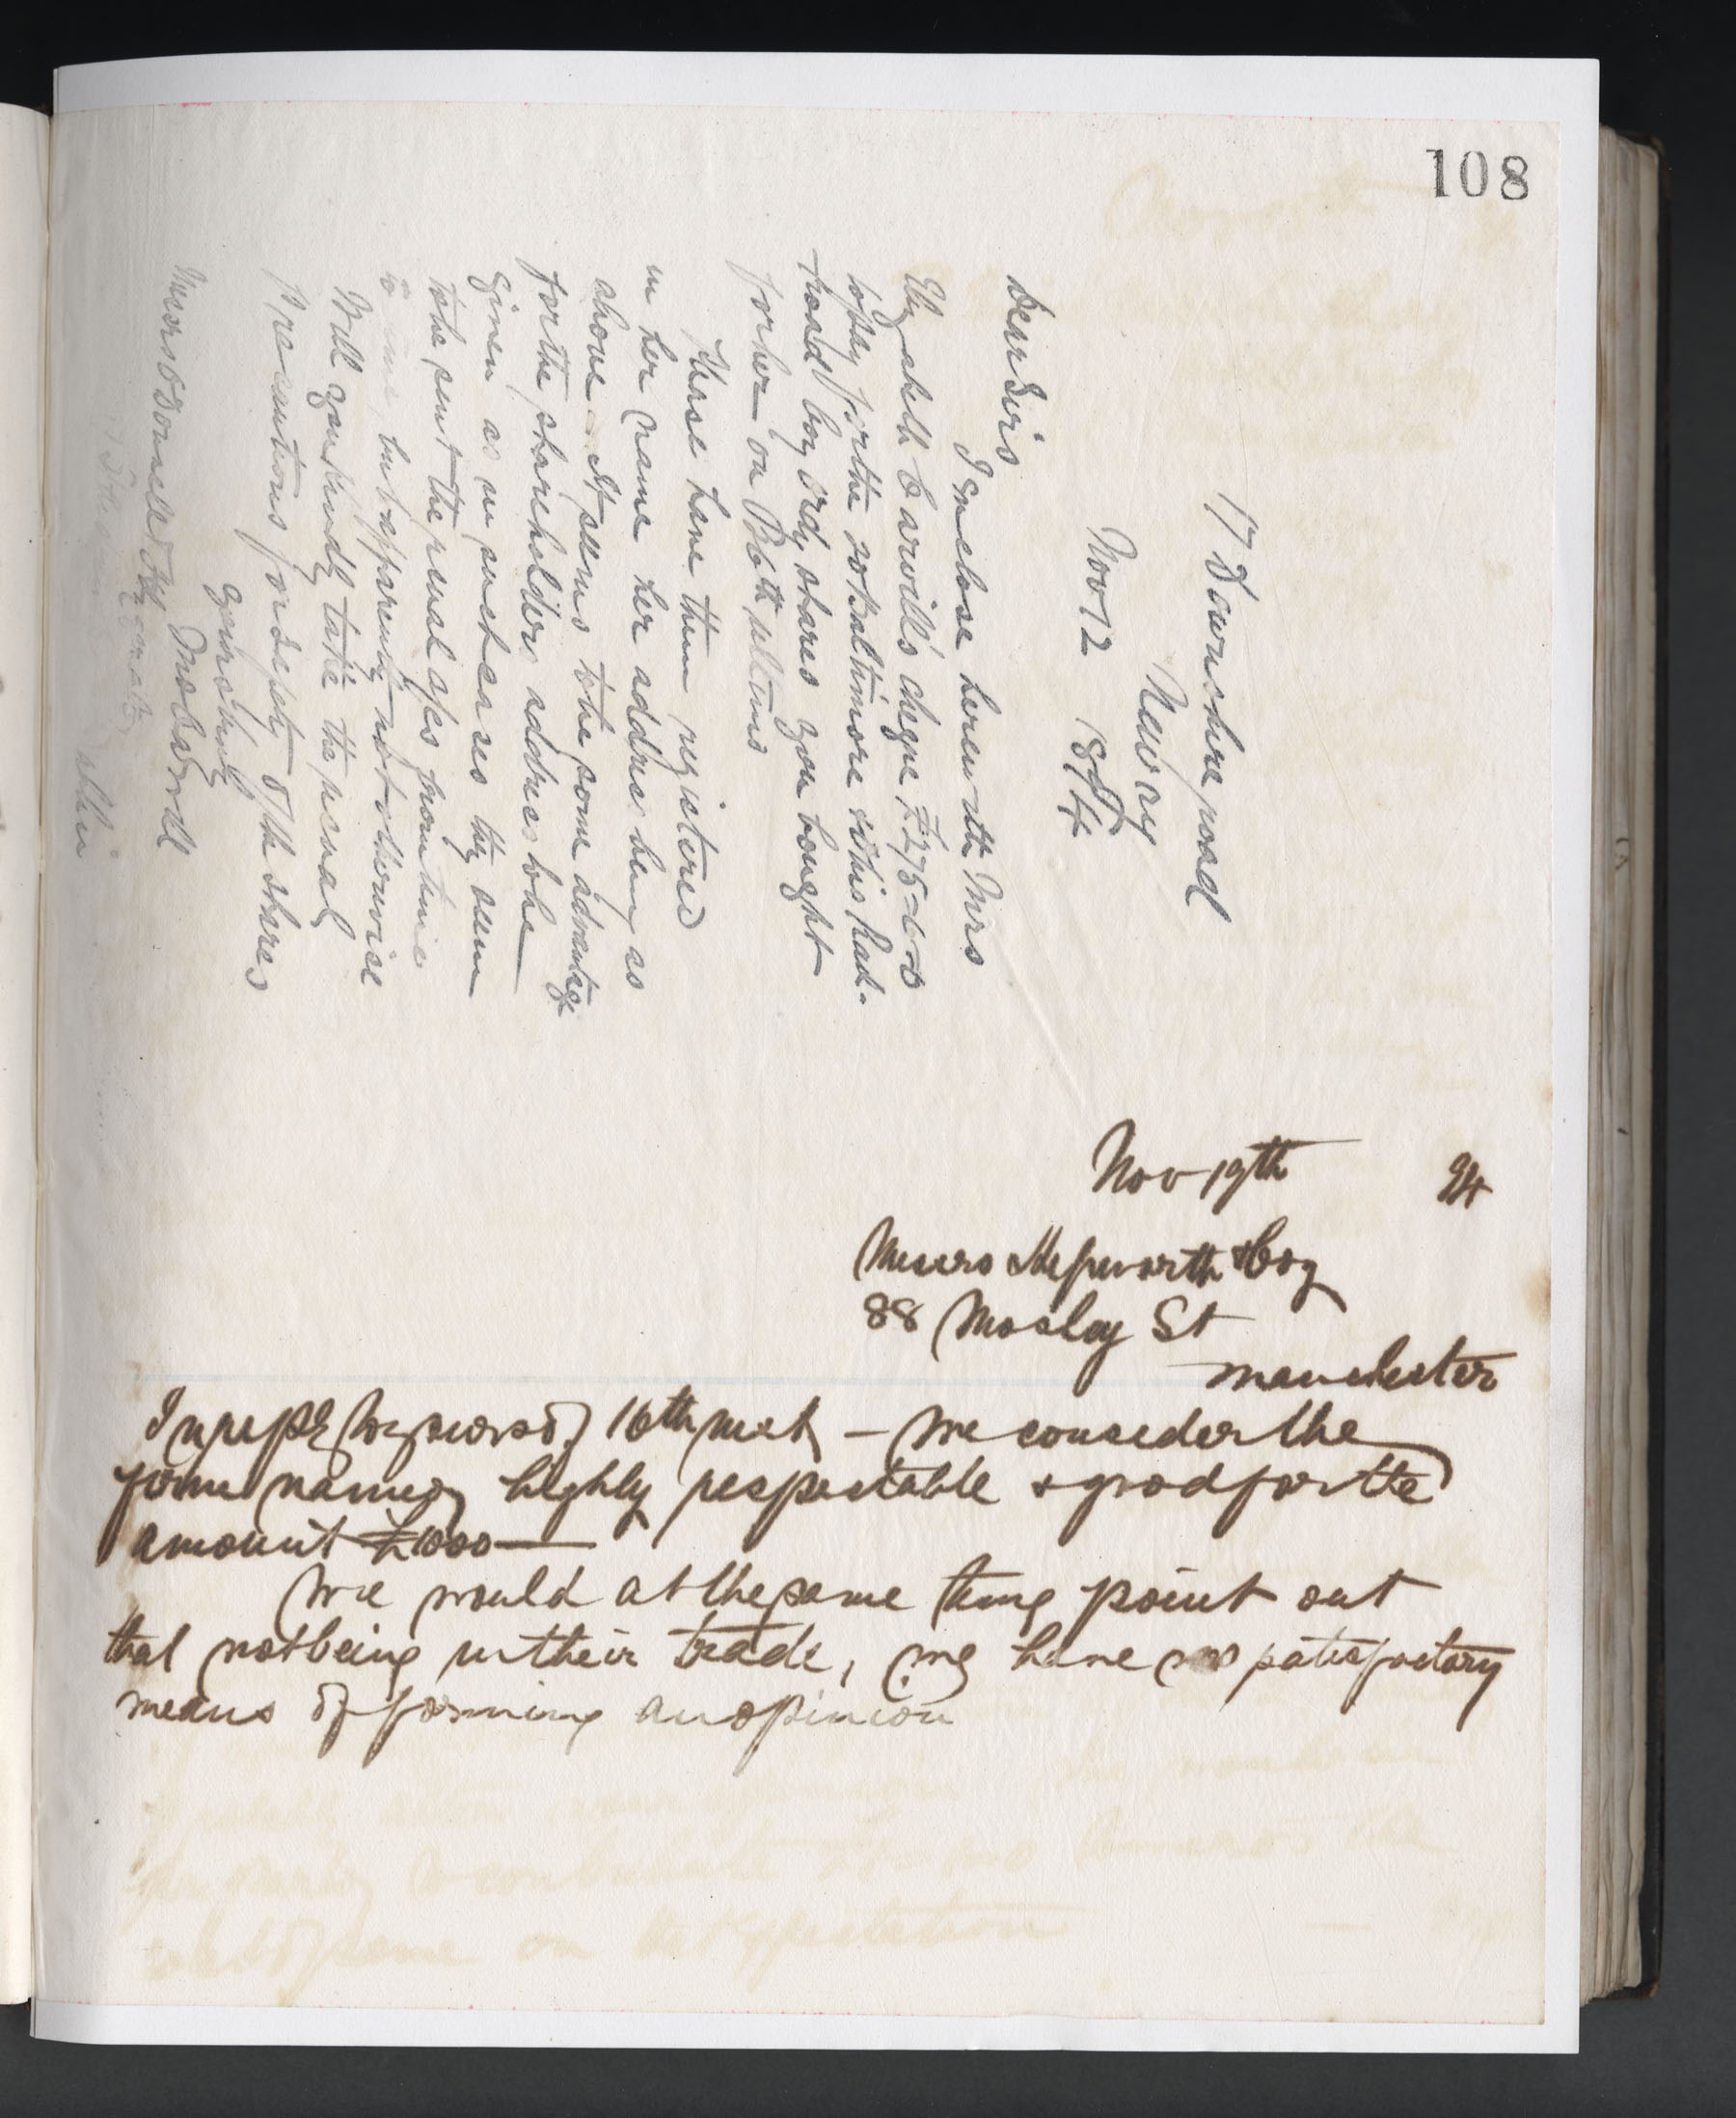 108
17 Downshire road
Newry
Nov 12 1894
Dear Sirs
I enclose herewith Mrs
Elizabeth Carvill's cheque £275-6-0
to pay for the 20 Baltimore & Ohio Rail-
road Coy ordy shares you bought
for her on the ultimo
Please have them registered
in her name her address being as
above It seems to be some advantage
for the shareholders address to be
given as in such cases they seem
to be sent the usual a/cs from time
to time but apparently not otherwise
Will you kindly take the usual
precautions for safety of the shares
yours truly
M Carvill
Messrs O'Donnell & Fitzgerald
Dublin
Nov 19th 94
Messrs Hepworth & Coy
88 Mosley St
Manchester
In reply to yours of 16th inst – we consider the
firm named highly respectable & good for the
amount £1000
We would at the same time point out
that not being in their trade, we have no satisfactory
means of forming an opinion